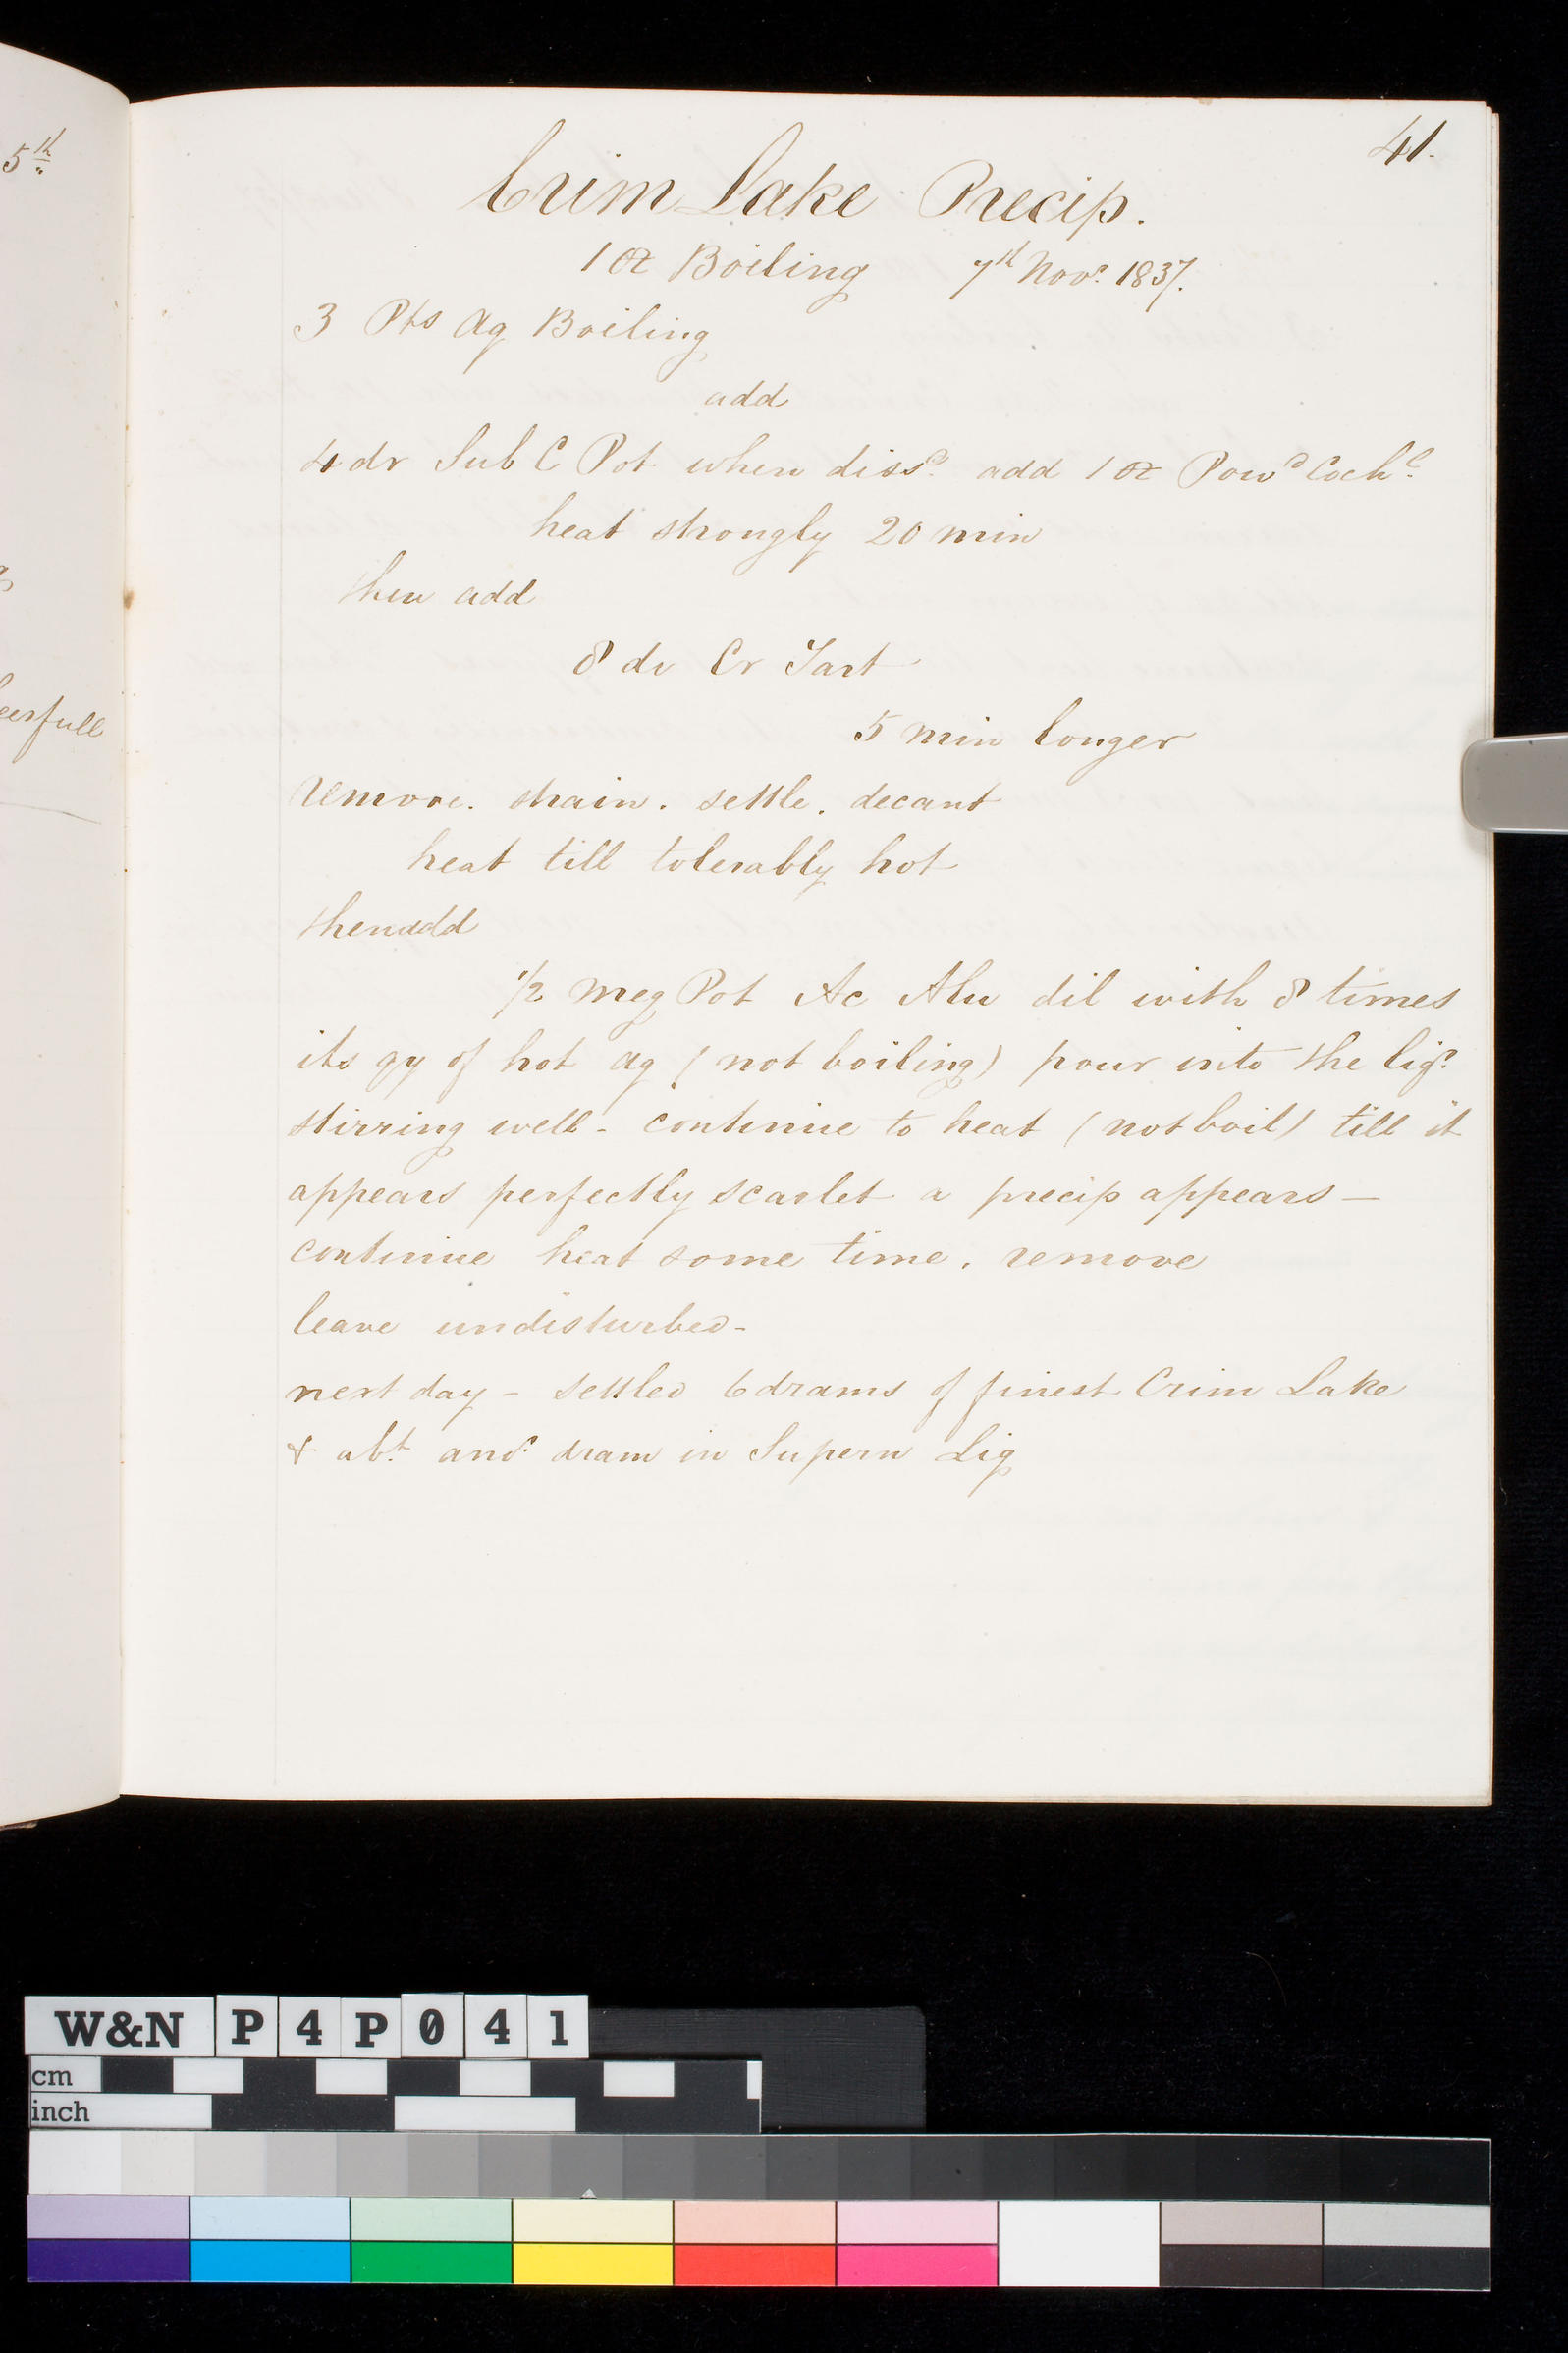 5th
erfull
41.
Crim Lake Precip.
1 oz Boiling 7th Novr. 1837.
3 Pts Aq Boiling
add
4 dr Sub C Pot when dissd. add 1 oz Powd Cochl.
heat strongly 20 min
then add
8 dr Cr Tart
5 min longer
remove. strain. settle. decant
heat till tolerably hot
then add
1/2 meg Pot Ac Alu dil with 8 times
its qy of hot aq (not boiling) pour into the liqr.
stirring well - continue to heat (not boil) till it
appears perfectly scarlet a precip appears —
continue heat some time. remove
leave undisturbed -
next day - settled 6 drams of finest Crim Lake
& abt. anor. dram in Supern Liq
W&N P4P041
cm
inch